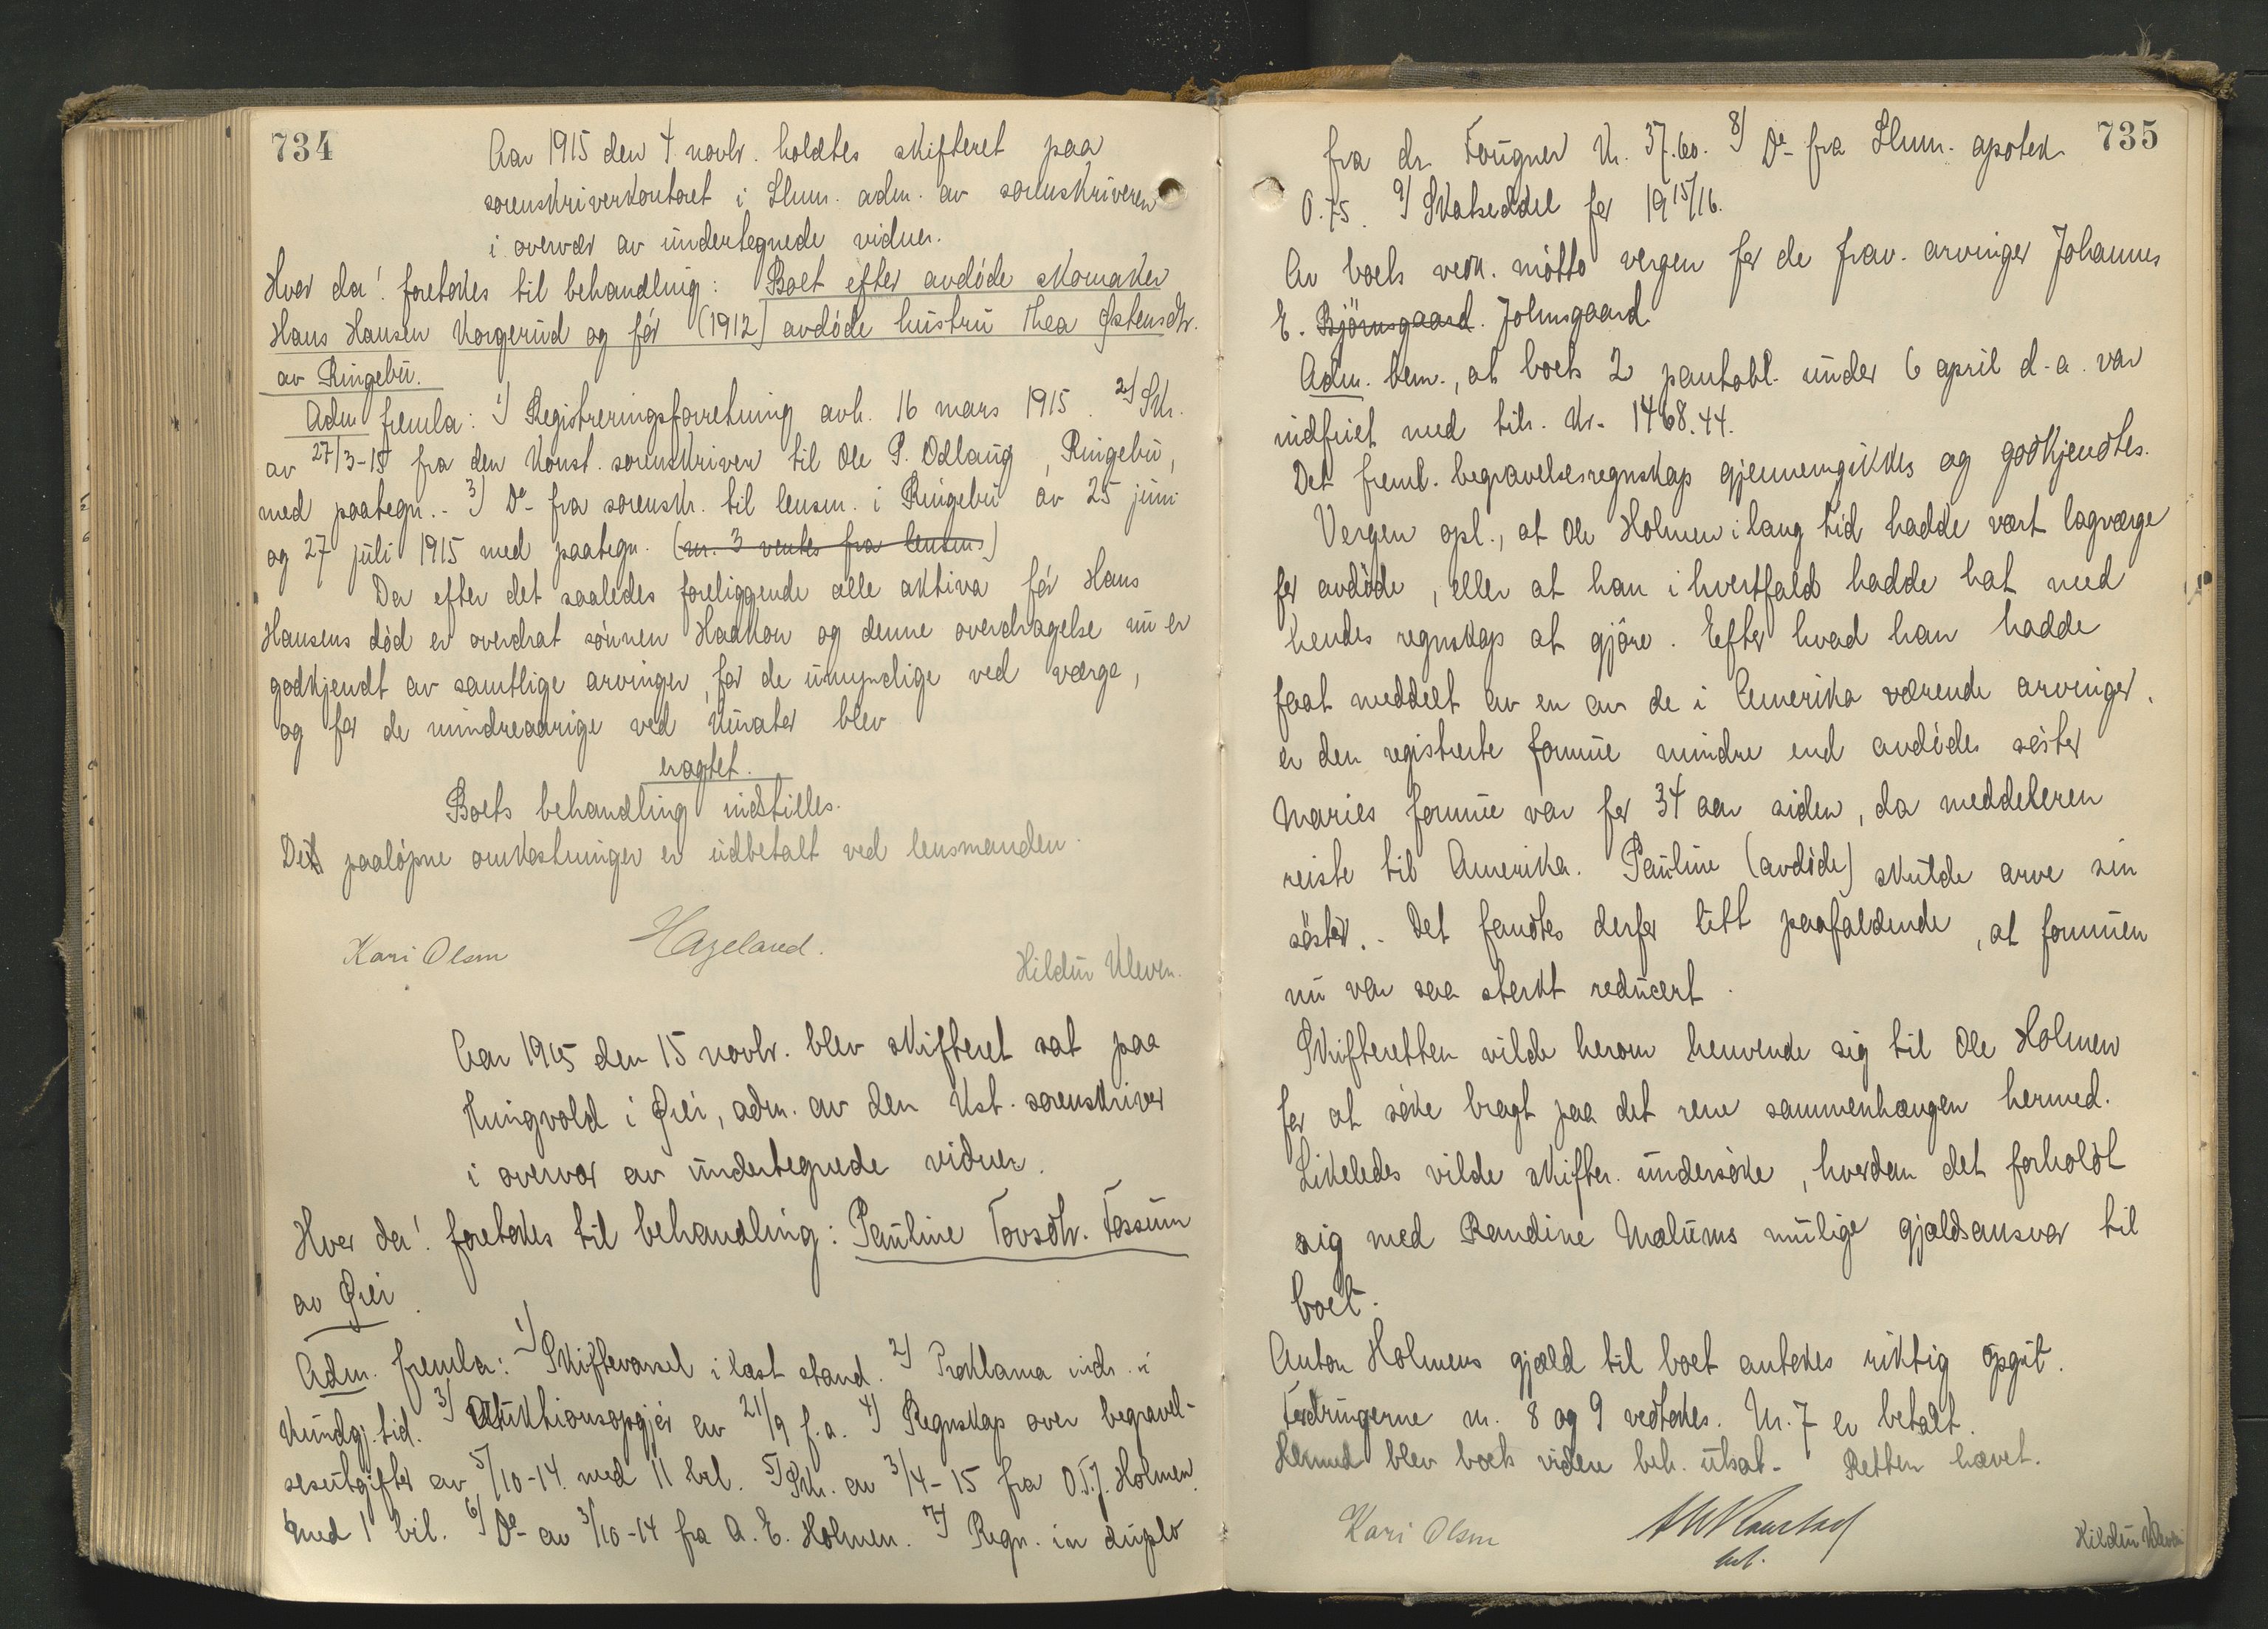 734
Aar 1915 den 4 novbr. holdtes skifteret paa
sorenskriverkontoret i Lhmr. adm. av sorenskriveren
i overvær av undertegnede vidner.
Hvor da! foretokes til behandling: Boet efter avdöde skomaker
Hans Hansen Korgerud og för (1912) avdöde hustru Thea Østensdtr.
av Ringebu.
Adm fremla: 1) Registreringsforretning avh. 16 mars 1915. 2) Skr.
av 27/3-15 fra den konst. sorenskriver til Ole P. Odlaug, Ringebu,
med paategn. - 3) Do- fra sorenskr. til lensm. i Ringebu av 25 juni
og 27 juli 1915 med paategn. (nr. 3 ventes fra lensm)
Da efter det saaledes foreliggende alle aktiva för Hans
Hansens död er overdrat sönnen Haakon og denne overdragelse nu er
godkjendt av samtlige arvinger, for de umyndige ved værge,
og for de mindreaarige ved kurator blev
eragtet.
Boets behandling indstilles.
De paalöpne omkostninger er udbetalt ved lensmanden.
Kari Olsen Hageland. Hildur Kleven.
Aar 1915 den 15 novbr. blev skifteret sat paa
Kringvold i Øier, adm. av den kst. sorenskriver
i overvær av undertegnede vidner.
Hvor da! foretokes til behandling: Pauline Tovsdtr. Fossum
av Øier.
Adm. fremla: 1) Skiftevarsel i læst stand. 2) Proklama indr. i
kundgj. tid. 3) Auktionsopgjör av 21/9 f.a. 4) Regnskap over begravel-
sesutgifter av 5/10-14 med 11 bil. 5) Skr. av 3/4-15 fra O.T.J. Holmen
med 1 bil. 6) Do- av 3/10-14 fra A. E. Holmen. 7) Regn. in duplo
735
fra dr. Fougner kr. 37.60. 8) Do- fra Lhmr. apotek
0.75. 9) Skatseddel for 1915/16.
Av boets vedk. mötte vergen for de frav. arvinger Johannes
E. Björnsgaard. Johnsgaard.
Adm. bem., at boets 2 pantobl. under 6 april d.a. var
indfriet med tils. kr. 1468.44.
Det freml. begravelsesregnskap gjennemgikkes og godkjendtes.
Vergen opl., at Ole Holmen i lang tid hadde vært lagværge
for avdöde, eller at han i hvertfald hadde hat med
hendes regnskap at gjöre. Efter hvad han hadde
faat meddelt av en av de i Amerika værende arvinger,
er den registrerte formue mindre end avdödes söster
Maries formue var for 34 aar siden, da meddeleren
reiste til Amerika. Pauline (avdöde) skulde arve sin
söster. - Det fandtes derfor litt paafaldende, at formuen
nu var saa sterkt reducert.
Skifteretten vilde herom henvende sig til Ole Holmen
for at söke bragt paa det rene sammenhængen hermed.
Likeledes vilde skifter. undersöke, hvordan det forholdt
sig med Randine Mælums mulige gjældsansvar til
boet.
Anton Holmens gjæld til boet antokes riktig opgit.
Fordringerne nr. 8 og 9 vedtokes. Nr. 7 er betalt.
Hermed blev boets videre beh. utsat. - Retten hævet.
Kari Olsen Hildur Kleven